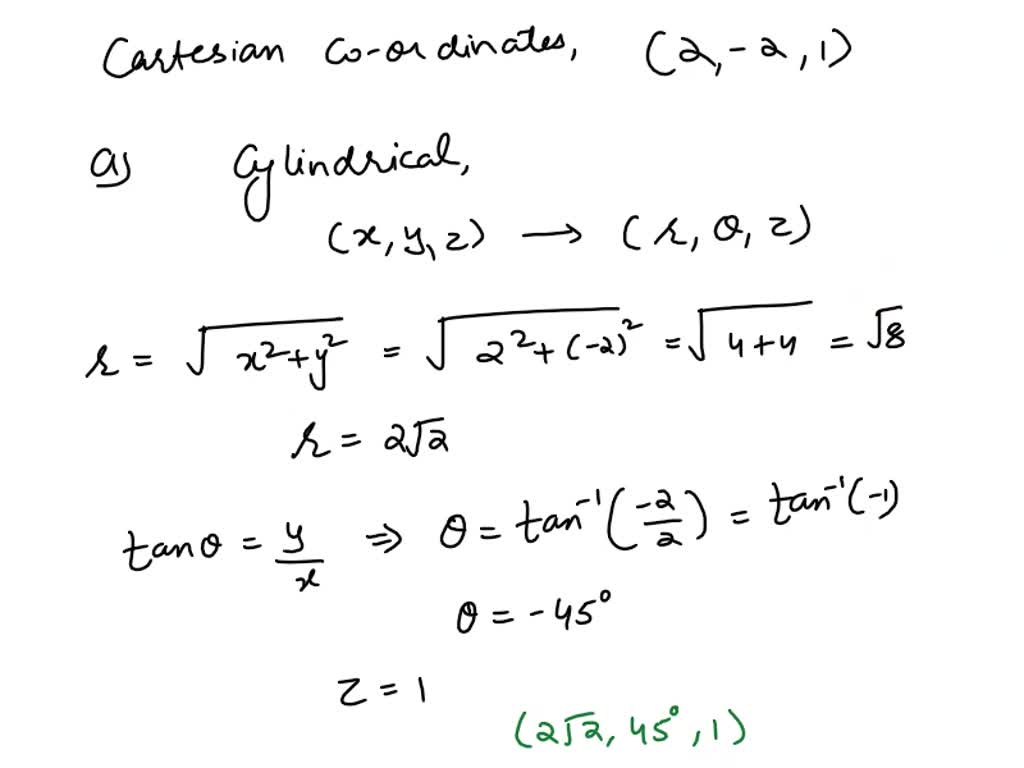 Cartesian Co-ordinates, (2,-2,1)
a) Cylindrical,
(x,y,z) → (r, θ, z)
r = √(x²+y²) = √(2²+(-2)²) = √(4+4) = √8
r = 2√2
tanθ = y/x ⇒ θ = tan⁻¹(-2/2) = tan⁻¹(-1)
θ = -45°
z = 1
(2√2, 45°, 1)